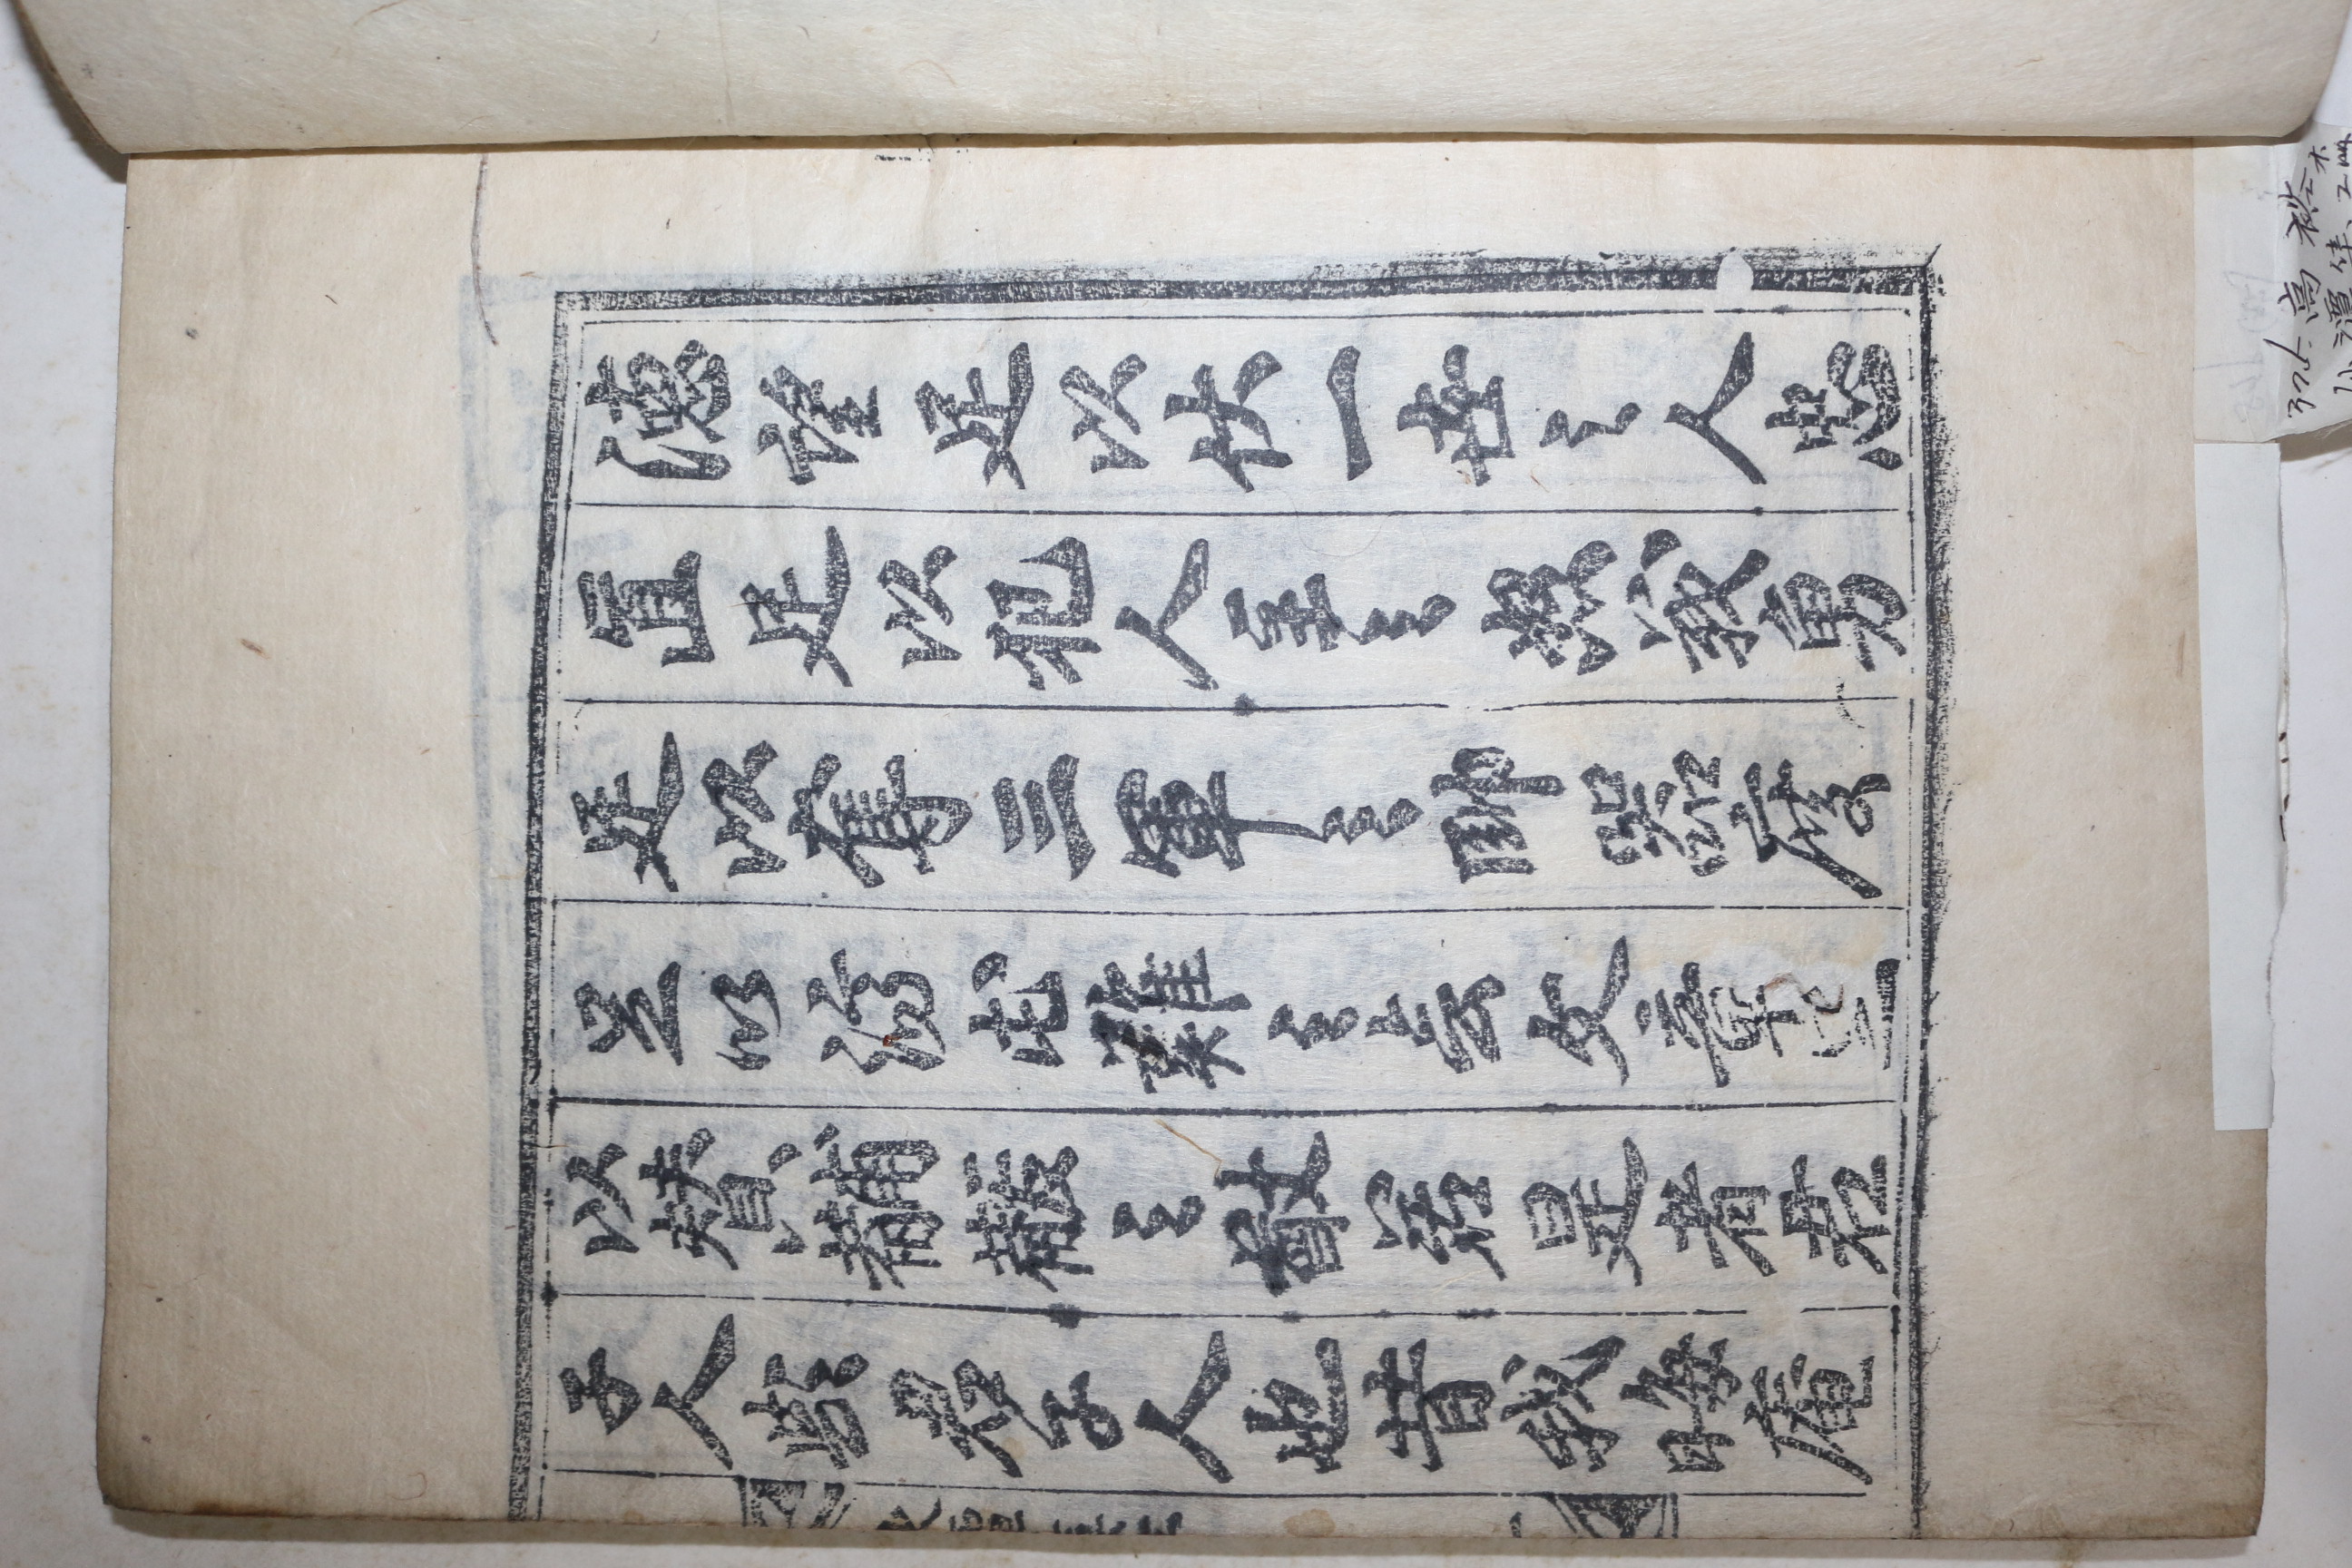 德望足以伏一世之人忠
直足以犯人主之怒義勇
足以奪三軍之帥器度
足以濟屯難之世文章足
以贊黼黻之猷若是者君
子人歟君子人也昔我晦庵
高裕
潭集